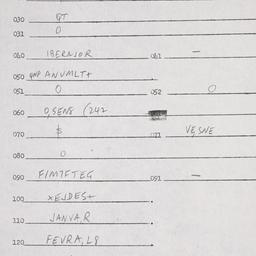 030 BT
031 O
040 IBERNJOR 041 —
050 ANVMLT+
051 O 052 O
060 O,SENS (242
070 $ 071 VESNE
080 O
090 F/M7FTEG 091 —
100 XEJDES+ .
110 JANVA,R .
120 FEVRA,L8 .